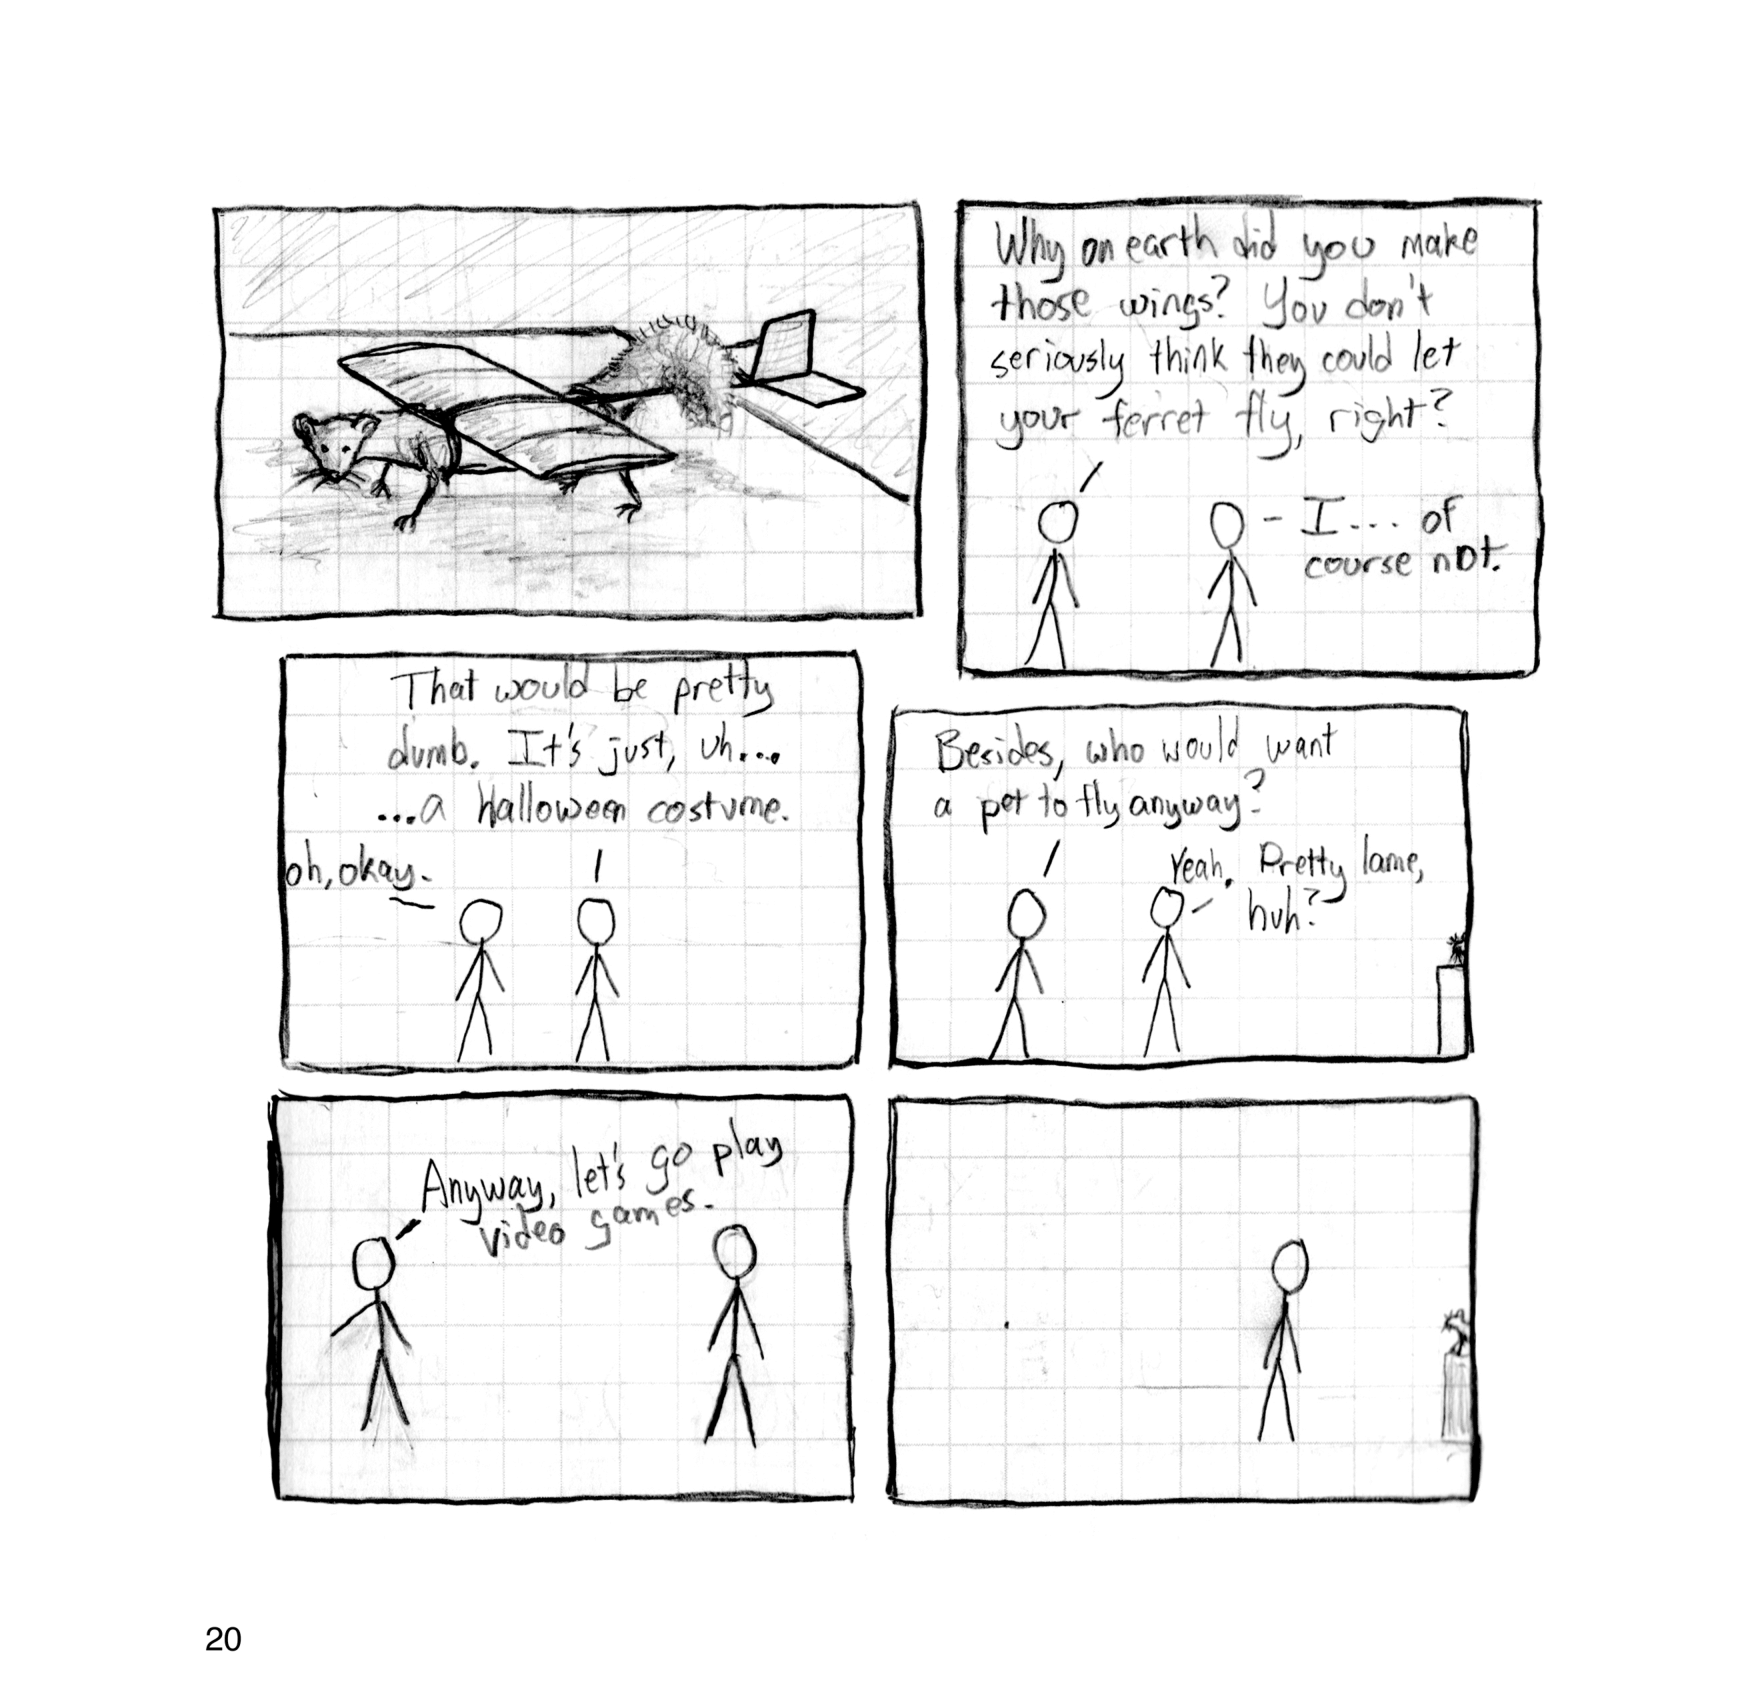 Why on earth did you make
those wings? You don't
seriously think they could let
your ferret fly, right?
I... of
course not.
That would be pretty
dumb. It's just, uh...
...a Halloween costume.
oh, okay.
Besides, who would want
a pet to fly anyway?
Yeah. Pretty lame,
huh?
Anyway, let's go play
video games.
20